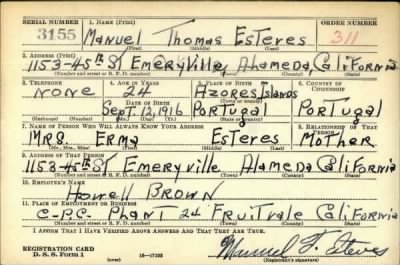 SERIAL NUMBER 1. NAME (Print) ORDER NUMBER
3155 Manuel Thomas Esteves 311
(First) (Middle) (Last)
2. ADDRESS (Print)
1153-45th St Emeryville, Alameda, California
(Number and street or R. F. D. number) (Town) (County) (State)
3. TELEPHONE 4. AGE IN YEARS 5. PLACE OF BIRTH 6. COUNTRY OF CITIZENSHIP
None 24 Azores Islands
(Town or county)
DATE OF BIRTH
Sept. 12, 1916 Portugal Portugal
(Mo.) (Day) (Yr.) (State or country)
7. NAME OF PERSON WHO WILL ALWAYS KNOW YOUR ADDRESS 8. RELATIONSHIP OF THAT PERSON
Mrs. Erma Esteves Mother
(Mr., Mrs., Miss) (First) (Middle) (Last)
9. ADDRESS OF THAT PERSON
1153-45th St Emeryville Alameda California
(Number and street or R. F. D. number) (Town) (County) (State)
10. EMPLOYER'S NAME
Howell Brown
11. PLACE OF EMPLOYMENT OR BUSINESS
C-P.C- Plant 24 Fruitvale California
(Number and street or R. F. D. number) (Town) (County) (State)
I AFFIRM THAT I HAVE VERIFIED ABOVE ANSWERS AND THAT THEY ARE TRUE.
REGISTRATION CARD
D. S. S. Form 1 16-17105 Manuel T. Esteves
(Registrant's signature)